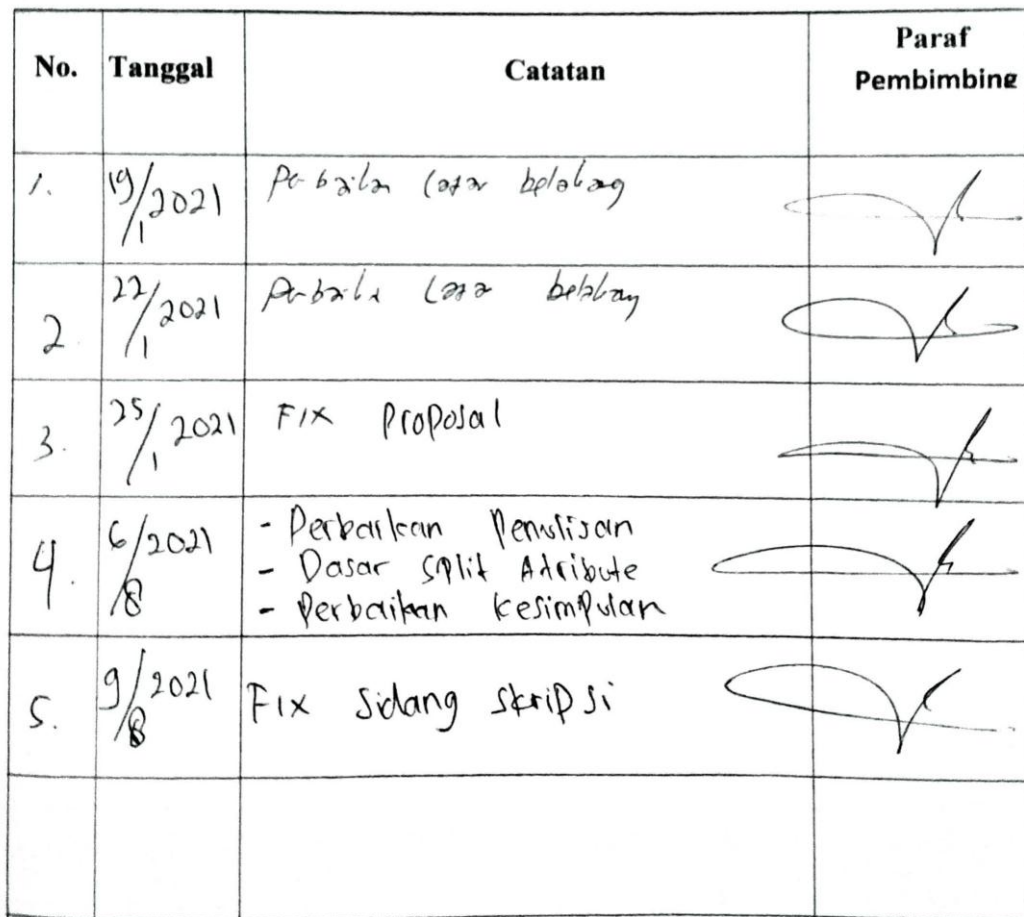 No. Tanggal Catatan Paraf Pembimbing
1. 19/1 2021 Perbaikan latar belakang
2 22/1 2021 Perbaikan latar belakang
3. 25/1 2021 FIX Proposal
4. 6/8 2021 - Perbaikan Penulisan
- Dasar Split Attribute
- Perbaikan kesimpulan
5. 9/8 2021 FIX Sidang Skripsi